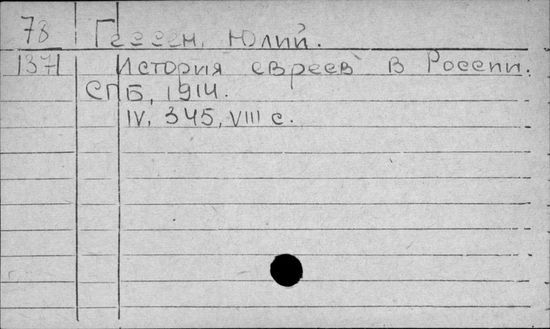 78 Гессен, Юлий.
1371 История евреев в России.
СПБ, 1914.
IV, 345, VIII с.